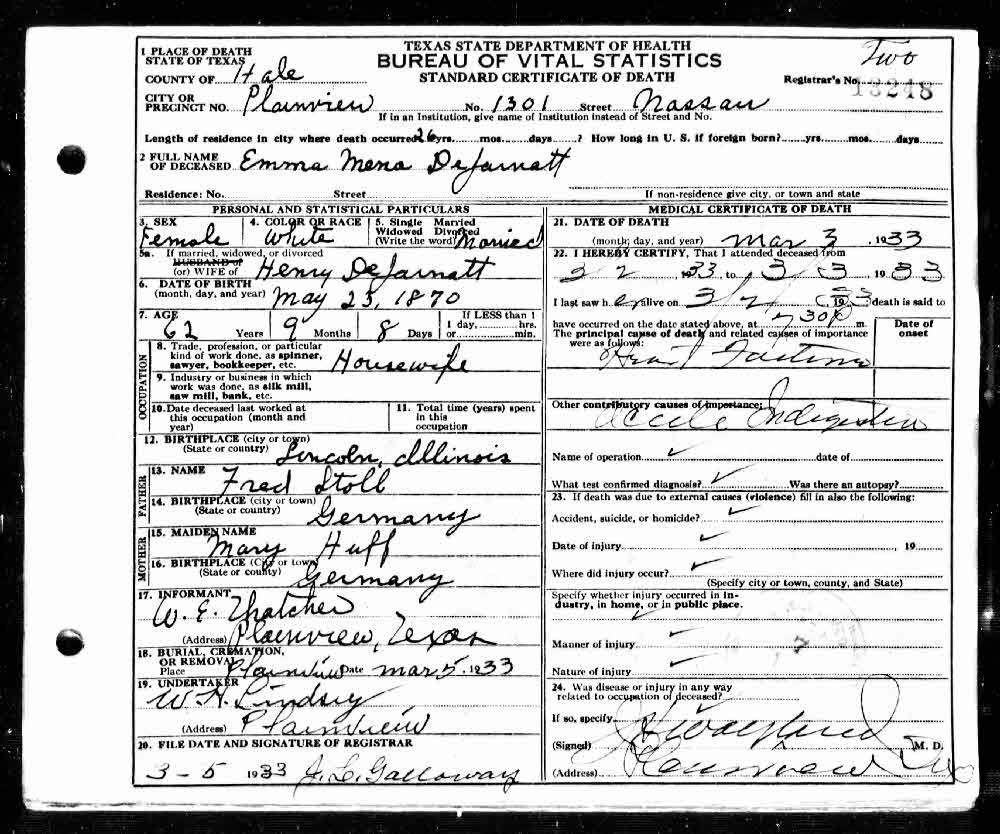 TEXAS STATE DEPARTMENT OF HEALTH
BUREAU OF VITAL STATISTICS
STANDARD CERTIFICATE OF DEATH
Two
Registrar's No. 13248
1 PLACE OF DEATH
STATE OF TEXAS
COUNTY OF Hale
CITY OR
PRECINCT NO. Plainview No. 1301 Street Nassau
If in an Institution, give name of Institution instead of Street and No.
Length of residence in city where death occurred 26 yrs. mos. days ? How long in U. S. if foreign born? yrs. mos. days.
2 FULL NAME
OF DECEASED Emma Mena DeJarnatt
Residence: No. Street If non-residence give city, or town and state
PERSONAL AND STATISTICAL PARTICULARS
3. SEX
Female
4. COLOR OR RACE
White
5. Single Married
Widowed Divorced
(Write the word) Married
5a. If married, widowed, or divorced
HUSBAND of
(or) WIFE of Henry DeJarnatt
6. DATE OF BIRTH
(month, day, and year) May 25, 1870
7. AGE
62 Years 9 Months 8 Days
If LESS than 1
1 day, hrs.
or min.
OCCUPATION
8. Trade, profession, or particular
kind of work done, as spinner,
sawyer, bookkeeper, etc. Housewife
9. Industry or business in which
work was done, as silk mill,
saw mill, bank, etc.
10. Date deceased last worked at
this occupation (month and
year)
11. Total time (years) spent
in this
occupation
12. BIRTHPLACE (city or town)
(State or country) Lincoln, Illinois
FATHER
13. NAME
Fred Stoll
14. BIRTHPLACE (city or town)
(State or county) Germany
MOTHER
15. MAIDEN NAME
Mary Huff
16. BIRTHPLACE (City or town)
(State or county) Germany
17. INFORMANT
W. E. Thatcher
(Address) Plainview, Texas
18. BURIAL, CREMATION,
OR REMOVAL
Place Plainview Date Mar 5. 1933
19. UNDERTAKER
W. H. Lindsey
(Address) Plainview
20. FILE DATE AND SIGNATURE OF REGISTRAR
3-5 1933 J. L. Galloway
MEDICAL CERTIFICATE OF DEATH
21. DATE OF DEATH
(month; day, and year) Mar 3, 1933
22. I HEREBY CERTIFY, That I attended deceased from
3 2 1933 to 3/3 1933
I last saw her alive on 3/2 1933 death is said to
have occurred on the date stated above, at 730 P m.
The principal cause of death and related causes of importance
were as follows:
Date of
onset
Other contributory causes of importance:
Acute Indigestion
Name of operation date of
What test confirmed diagnosis? Was there an autopsy?
23. If death was due to external causes (violence) fill in also the following:
Accident, suicide, or homicide?
Date of injury , 19
Where did injury occur?
(Specify city or town, county, and State)
Specify whether injury occurred in in-
dustry, in home, or in public place.
Manner of injury
Nature of injury
24. Was disease or injury in any way
related to occupation of deceased?
If so, specify
(Signed) M. D.
(Address) Plainview Tex